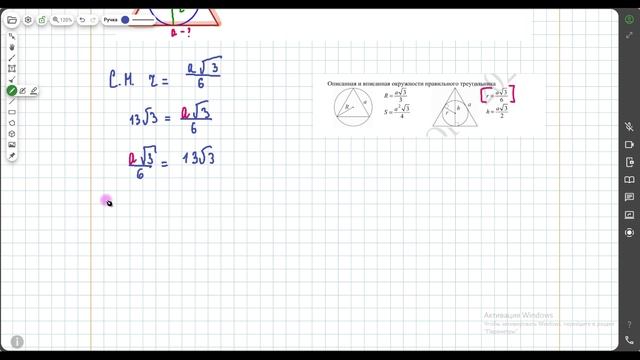 Ручка
120%
a - ?
С.М. r = a√3/6
13√3 = a√3/6
a√3/6 = 13√3
Описанная и вписанная окружности правильного треугольника
R a
R = a√3/3
S = a²√3/4
r h a
r = a√3/6
h = a√3/2
Активация Windows
Чтобы активировать Windows, перейдите в раздел
"Параметры".